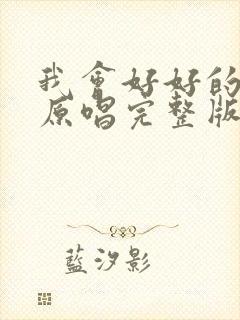 我會好好的
原唱完整版
藍汐影